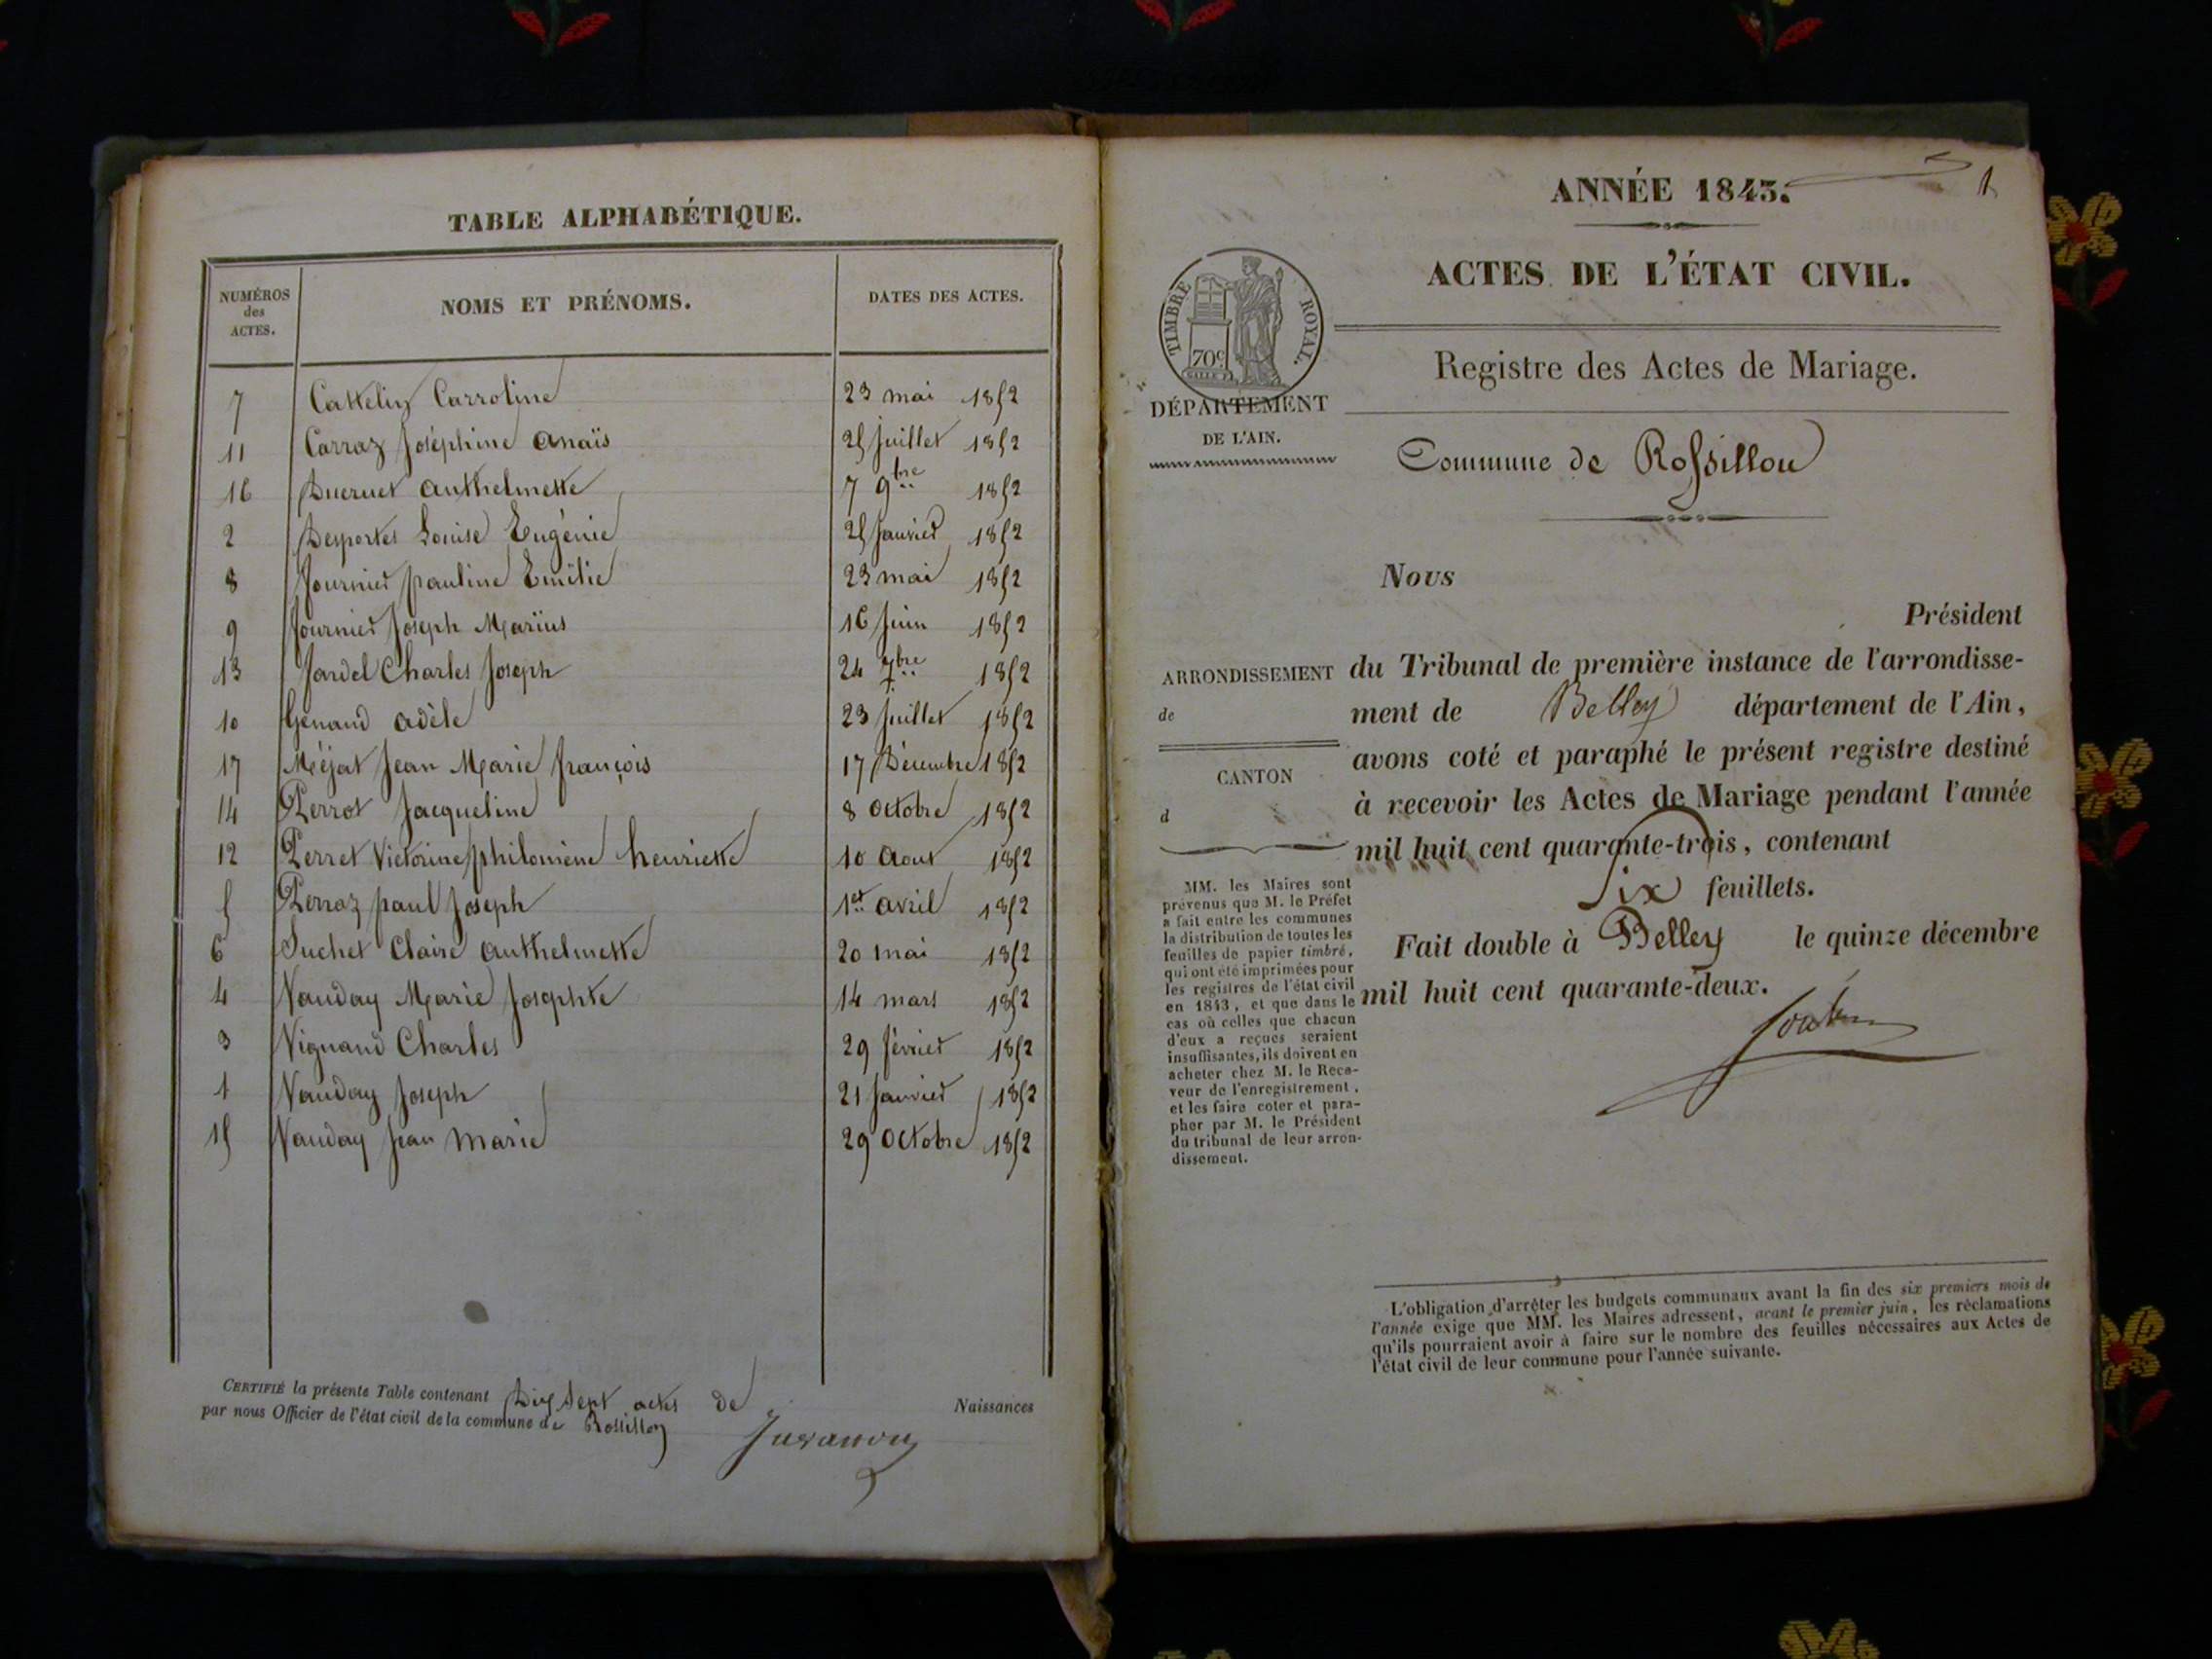 TABLE ALPHABÉTIQUE.
NUMÉROS des ACTES. NOMS ET PRÉNOMS. DATES DES ACTES.
7 Cattelin Carroline 23 mai 1852
11 Carraz Joséphine Anaïs 25 Juillet 1852
16 Ducruet Anthelmette 7 9bre 1852
2 Desportes Louise Eugénie 25 Janvier 1852
8 Fournier pauline Emilie 23 mai 1852
9 Fournier Joseph Marius 16 Juin 1852
13 Jardel Charles Joseph 24 7bre 1852
10 Genand Adèle 23 Juillet 1852
17 Méjat Jean Marie françois 17 Décembre 1852
14 Perrot Jacqueline 8 Octobre 1852
12 Perret Victorine philomène henriette 10 Aout 1852
5 Perraz paul Joseph 1er avril 1852
6 Suchet Claire Anthelmette 20 mai 1852
4 Vauday Marie Josephte 14 mars 1852
3 Vignand Charles 29 février 1852
1 Vauday Joseph 21 Janvier 1852
15 Vauday Jean Marie 29 Octobre 1852
CERTIFIÉ la présente Table contenant Dix Sept actes de Naissances
par nous Officier de l'état civil de la commune de Rossillon
ANNÉE 1843.
1
ACTES DE L'ÉTAT CIVIL.
TIMBRE ROYAL.
70c.
Registre des Actes de Mariage.
DÉPARTEMENT
DE L'AIN.
Commune de Rossillon
Nous
Président
ARRONDISSEMENT
de
CANTON
d
du Tribunal de première instance de l'arrondisse-
ment de Belley département de l'Ain,
avons coté et paraphé le présent registre destiné
à recevoir les Actes de Mariage pendant l'année
mil huit cent quarante-trois, contenant
Six feuillets.
Fait double à Belley le quinze décembre
mil huit cent quarante-deux.
MM. les Maires sont
prévenus que M. le Préfet
a fait entre les communes
la distribution de toutes les
feuilles de papier timbré,
qui ont été imprimées pour
les registres de l'état civil
en 1843, et que dans le
cas où celles que chacun
d'eux a reçues seraient
insuffisantes, ils doivent en
acheter chez M. le Rece-
veur de l'enregistrement,
et les faire coter et para-
pher par M. le Président
du tribunal de leur arron-
dissement.
L'obligation d'arrêter les budgets communaux avant la fin des six premiers mois de
l'année exige que MM. les Maires adressent, avant le premier juin, les réclamations
qu'ils pourraient avoir à faire sur le nombre des feuilles nécessaires aux Actes de
l'état civil de leur commune pour l'année suivante.